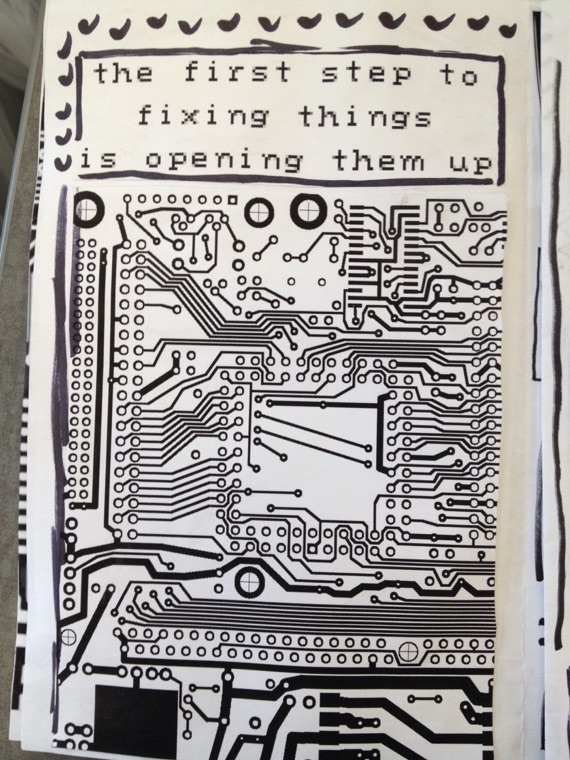 the first step to
fixing things
is opening them up